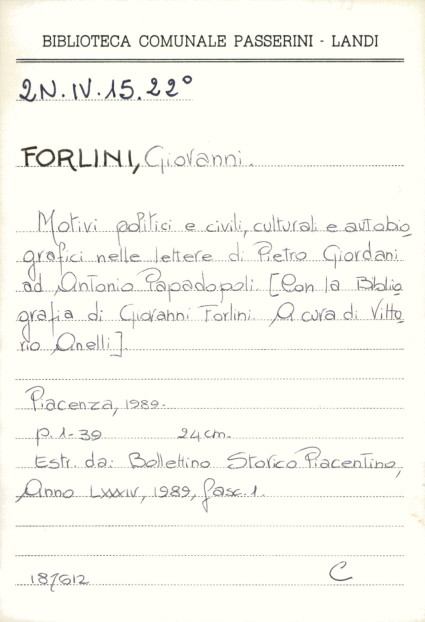 BIBLIOTECA COMUNALE PASSERINI - LANDI
2N.IV.15.22°
FORLINI, Giovanni.
Motivi politici e civili, culturali e autobio
grafici nelle lettere di Pietro Giordani
ad Antonio Papadopoli. [Con la Biblio
grafia di Giovanni Forlini. A cura di Vitto
rio Anelli].
Piacenza, 1989.
p. 1-39 24 cm.
Estr. da: Bollettino Storico Piacentino,
Anno LXXXIV, 1989, fasc. 1.
187612 C